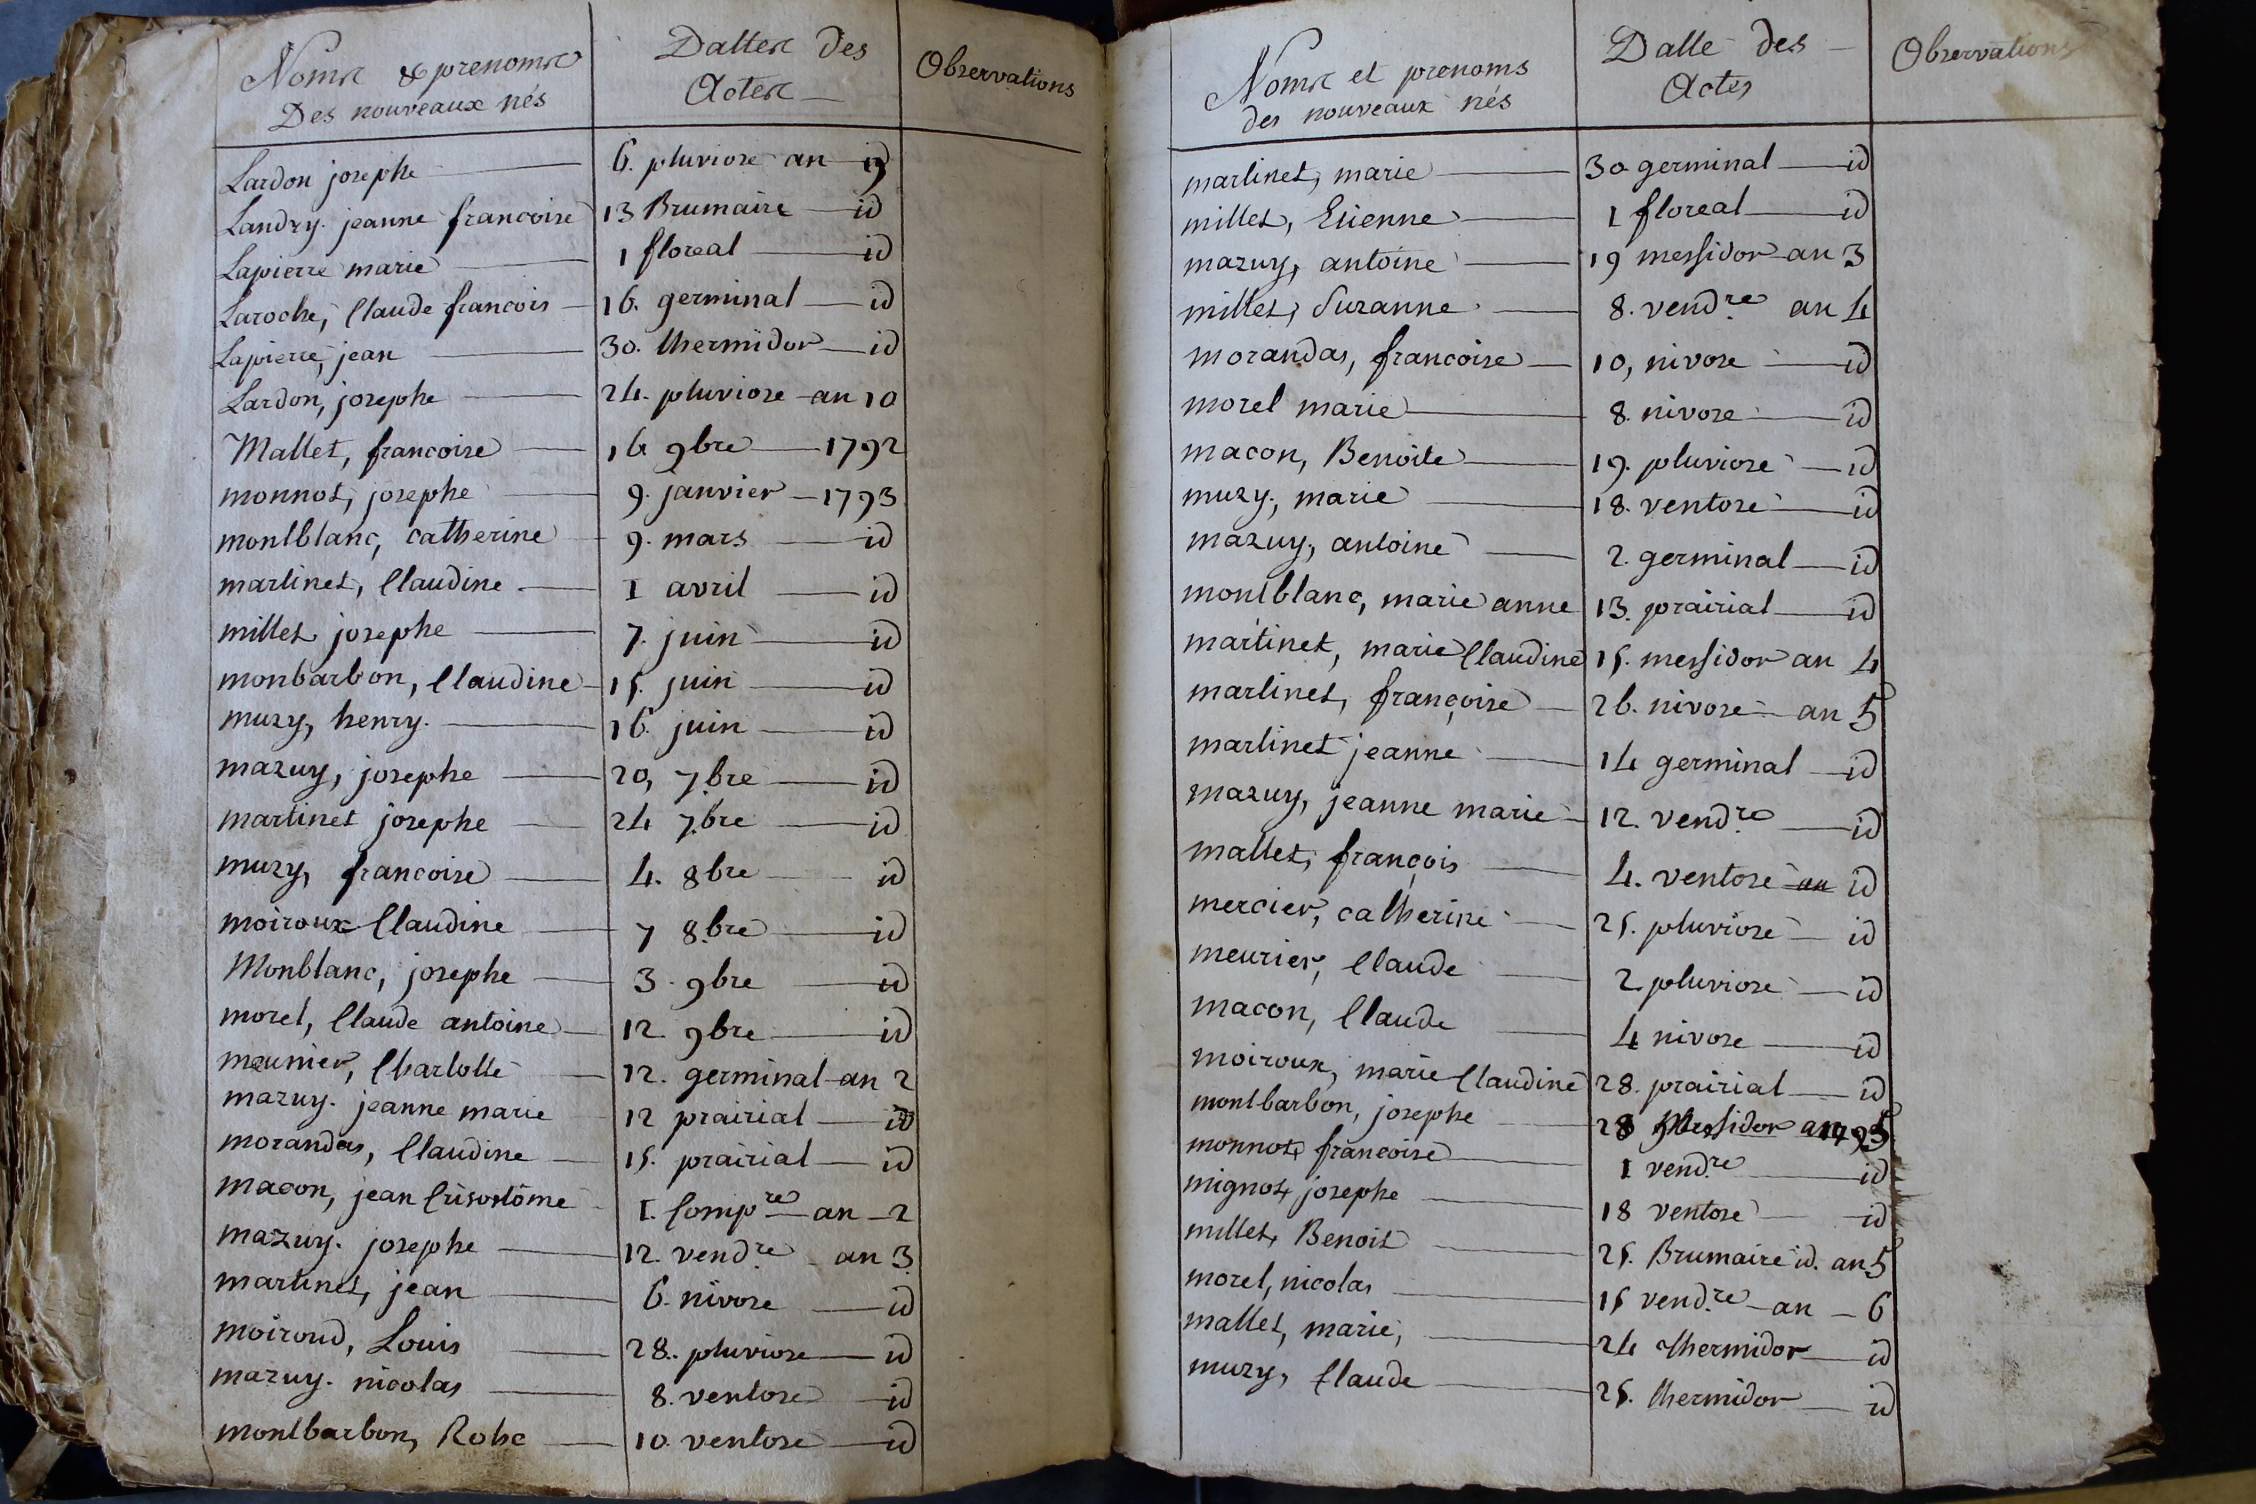 Noms & prenoms
Des nouveaux nés
Dattes des
Actes
Observations
Lardon josephe 6. pluviose an 9
Landry. jeanne francoise 13 Brumaire id
Lapierre marie 1 floreal id
Laroche, Claude francois 16. germinal id
Lapierre, jean 30. thermidor id
Lardon, josephe 24. pluviose an 10
Mallet, francoise 16 9bre 1792
monnot, josephe 9. janvier 1793
montblanc, catherine 9. mars id
martinet, Claudine 1 avril id
millet josephe 7. juin id
monbarbon, Claudine 15. juin id
muzy, henry. 16. juin id
mazuy, josephe 20, 7bre id
martinet josephe 24 7bre id
muzy, francoise 4. 8bre id
moiroux Claudine 7 8bre id
Monblanc, josephe 3. 9bre id
morel, Claude antoine 12 9bre id
meunier, Charlotte 12. germinal an 2
mazuy. jeanne marie 12 prairial id
morandas, Claudine 15. prairial id
macon, jean Crisostome 1. Comp.re an 2
mazuy. josephe 12. vend.re an 3
martinet, jean 6. nivose id
moiroud, Louis 28. pluviose id
mazuy. nicolas 8. ventose id
montbarbon, 10. ventose id
Noms et prenoms
des nouveaux nés
Datte des
Actes
Observations
martinet, marie 30 germinal id
millet, Etienne 1 floreal id
mazuy, antoine 19 messidor an 3
millet, Suzanne 8. vend.re an 4
morandas, francoise 10, nivose id
morel marie 8. nivose id
macon, Benoite 19. pluviose id
muzy, marie 18. ventose id
mazuy, antoine 2. germinal id
montblanc, marie anne 13. prairial id
martinet, marie Claudine 15. messidor an 4
martinet, françoise 26. nivose an 5
martinet jeanne 14 germinal id
mazuy, jeanne marie 12. vend.re id
mallet, françois 4. ventose an id
mercier, catherine 25. pluviose id
meurier, Claude 2 pluviose id
macon, Claude 4 nivose id
moiroux, marie Claudine 28. prairial id
montbarbon, josephe 28
monnot francoise 1 vend.re id
mignot josephe 18 ventose id
millet, Benoit 25. Brumaire id. an 5
morel, nicolas 15 vend.re an 6
mallet, marie, 24 thermidor id
muzy, Claude 25. thermidor id